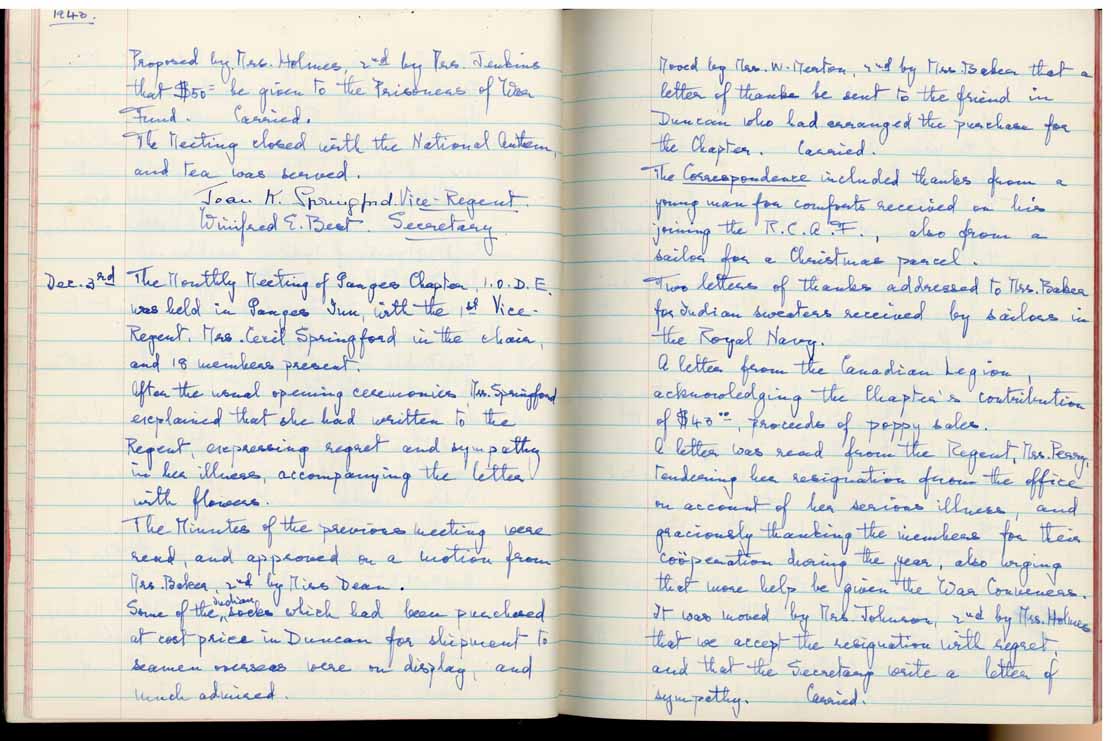 1943.
Proposed by Mrs. Holmes, 2nd by Mrs. Jenkins
that $50= be given to the Prisoners of War
Fund. Carried.
The Meeting closed with the National Anthem,
and tea was served.
Joan K. Springford. Vice-Regent.
Winifred E. Best. Secretary
Dec. 3rd The Monthly Meeting of Ganges Chapter, I.O.D.E.
was held in Ganges Inn, with the 1st Vice-
Regent, Mrs. Cecil Springford in the chair,
and 18 members present.
After the usual opening ceremonies, Mrs. Springford
explained that she had written to the
Regent, expressing regret and sympathy
in her illness, accompanying the letter
with flowers.
The Minutes of the previous meeting were
read, and approved on a motion from
Mrs. Baker, 2nd by Miss Dean.
Some of the Indian socks which had been purchased
at cost price in Duncan for shipment to
seamen overseas were on display, and
much admired.
Moved by Mrs. W. Merton, 2nd by Mrs. Baker that a
letter of thanks be sent to the friend in
Duncan who had arranged the purchase for
the Chapter. Carried.
The Correspondence included thanks from a
young man for comforts received on his
joining the R.C.A.F., also from a
sailor for a Christmas parcel.
Two letters of thanks addressed to Mrs. Baker
for Indian sweaters received by sailors in
the Royal Navy.
A letter from the Canadian Legion,
acknowledging the Chapter's contribution
of $43.00, proceeds of poppy sales.
A letter was read from the Regent, Mrs. Perry,
tendering her resignation from the office
on account of her serious illness, and
graciously thanking the members for their
coöperation during the year, also urging
that more help be given the War Conveners.
It was moved by Mrs. Johnson, 2nd by Mrs. Holmes
that we accept the resignation with regret,
and that the Secretary write a letter of
sympathy. Carried.